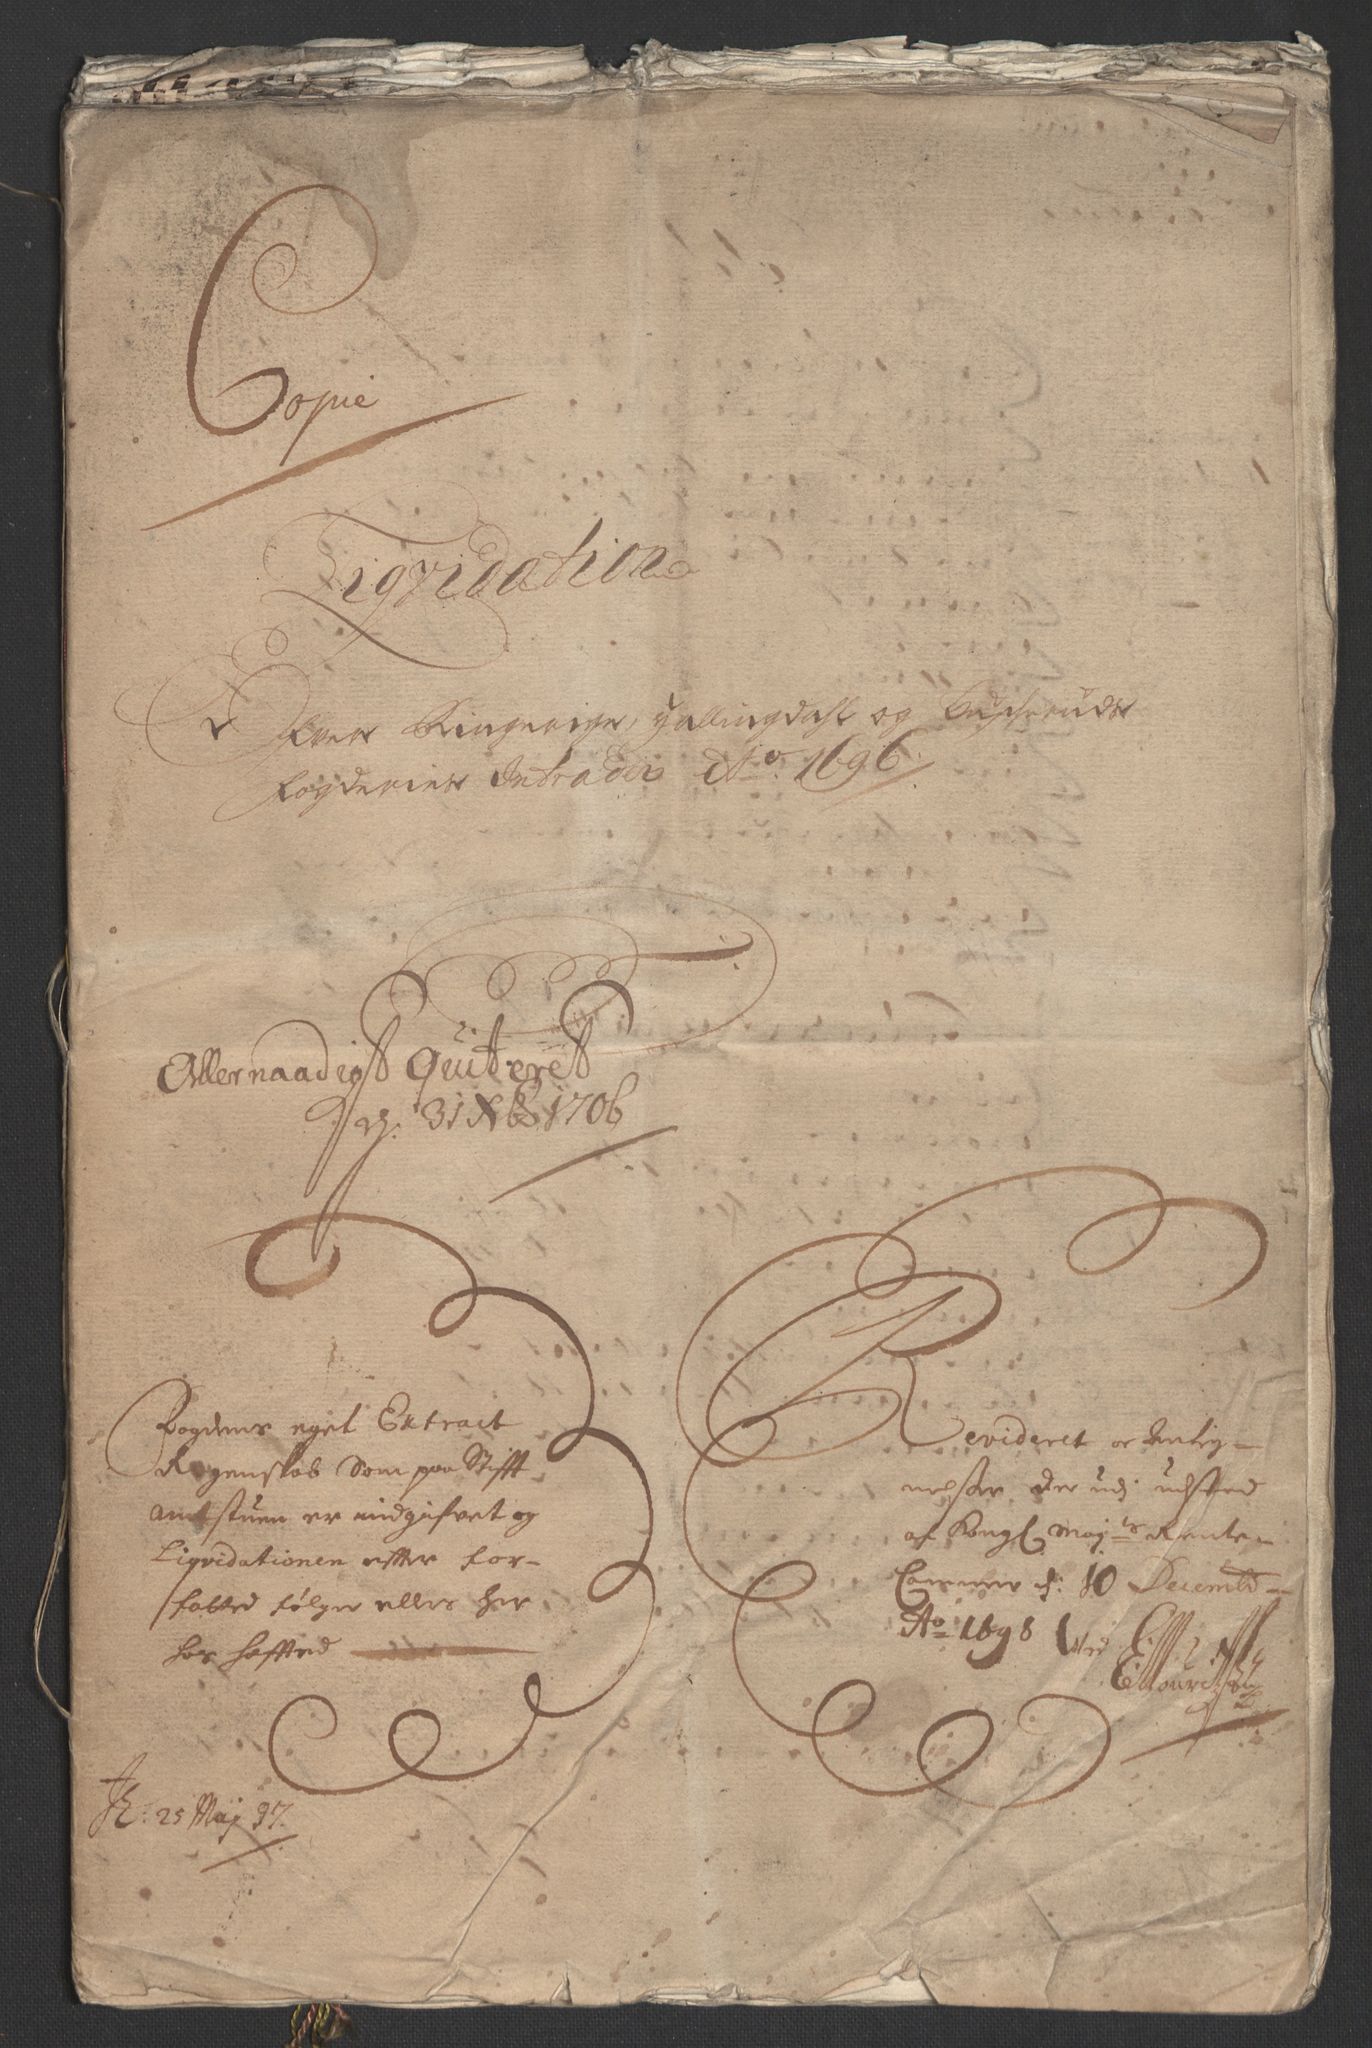 Copie
Liqvidation
Ofver Ringeriges, Hallingdahl og Buscheruds
fogderiers Intrader Ao. 1696.
Allernaadigst Qviteret
d. 31 Xbr 1706
Fogdens eget Extract
Regenskab som paa Stifft
amtstuen er indgifvet og
Liqvidationen effter for-
fatted følger ellers her
hos heffted
Revideret oc Antig-
nelser der udj udsted
af Kongl Maj:ts Rente-
Cammer d: 10 Decembr
Ao 1698 Ved
25 Maj 97.